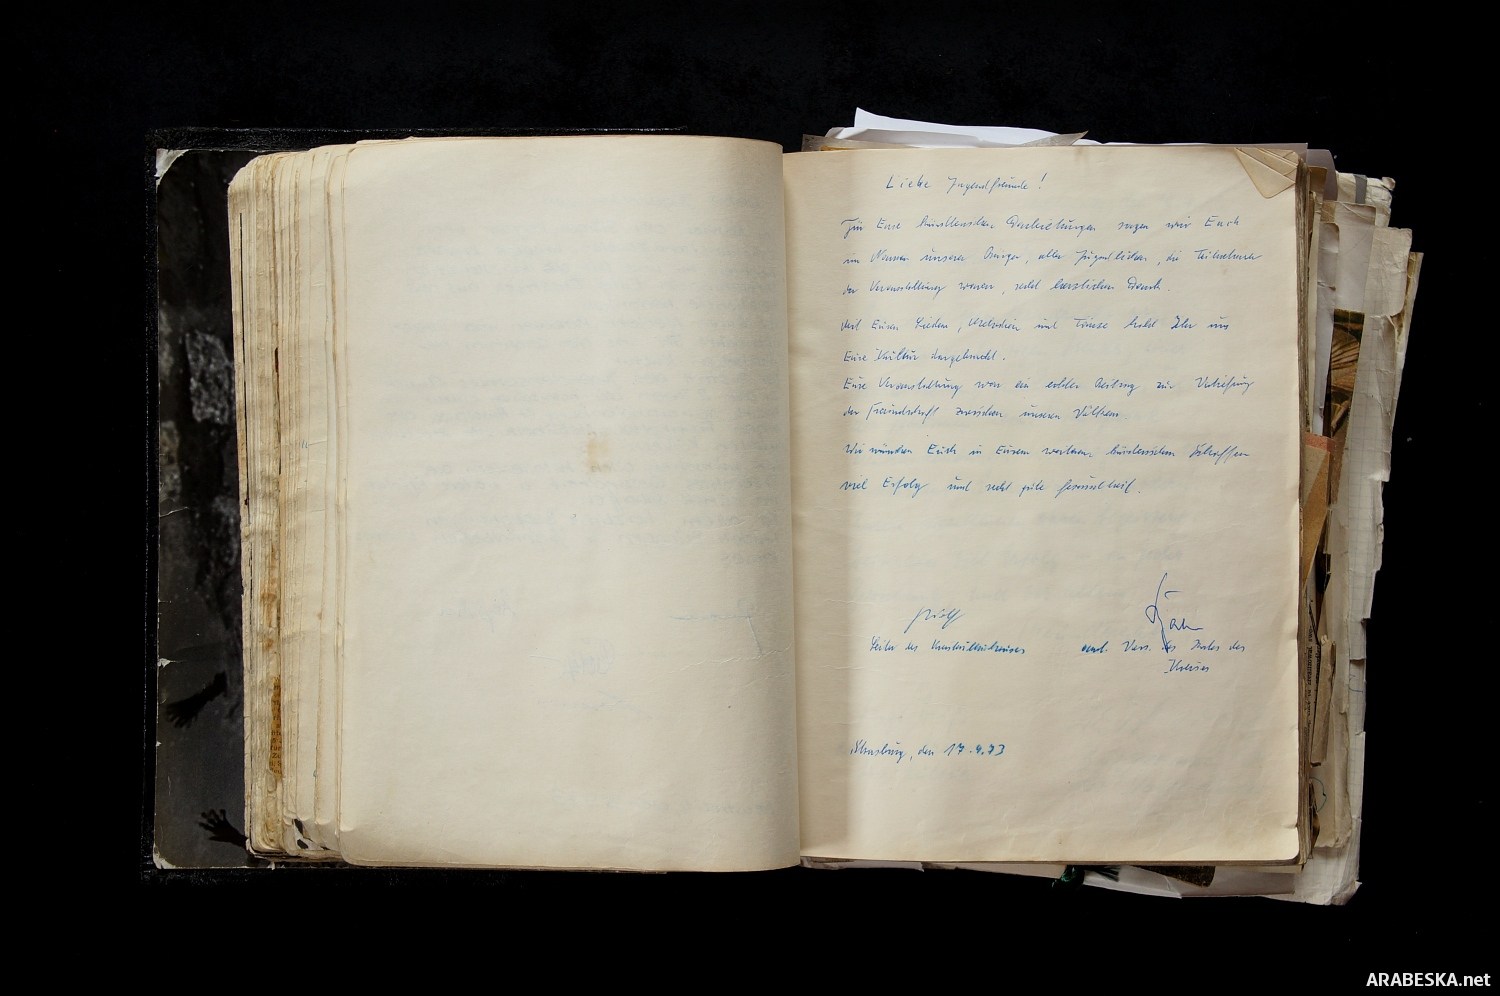 Liebe Jugendfreunde!
Für Eure künstlerischen Darbietungen sagen wir Euch
im Namen unserer Bürger, aller Jugendlichen, die Teilnehmer
der Veranstaltung waren, recht herzlichen Dank.
Mit Euren Liedern, Melodien und Tänze habt Ihr uns
Eure Kultur dargebracht.
Eure Veranstaltung war ein echter Beitrag zur Vertiefung
der Freundschaft zwischen unseren Völkern.
Wir wünschen Euch in Eurem weiteren künstlerischen Schaffen
viel Erfolg und recht gute Gesundheit.
Leiter des Kreiskulturhauses
amt. Vors. des Rates des
Kreises
den 17.4.73
ARABESKA.net